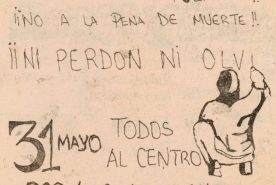 ¡¡NO A LA PENA DE MUERTE!!
¡¡NI PERDON NI OLVI
31 MAYO TODOS
AL CENTRO